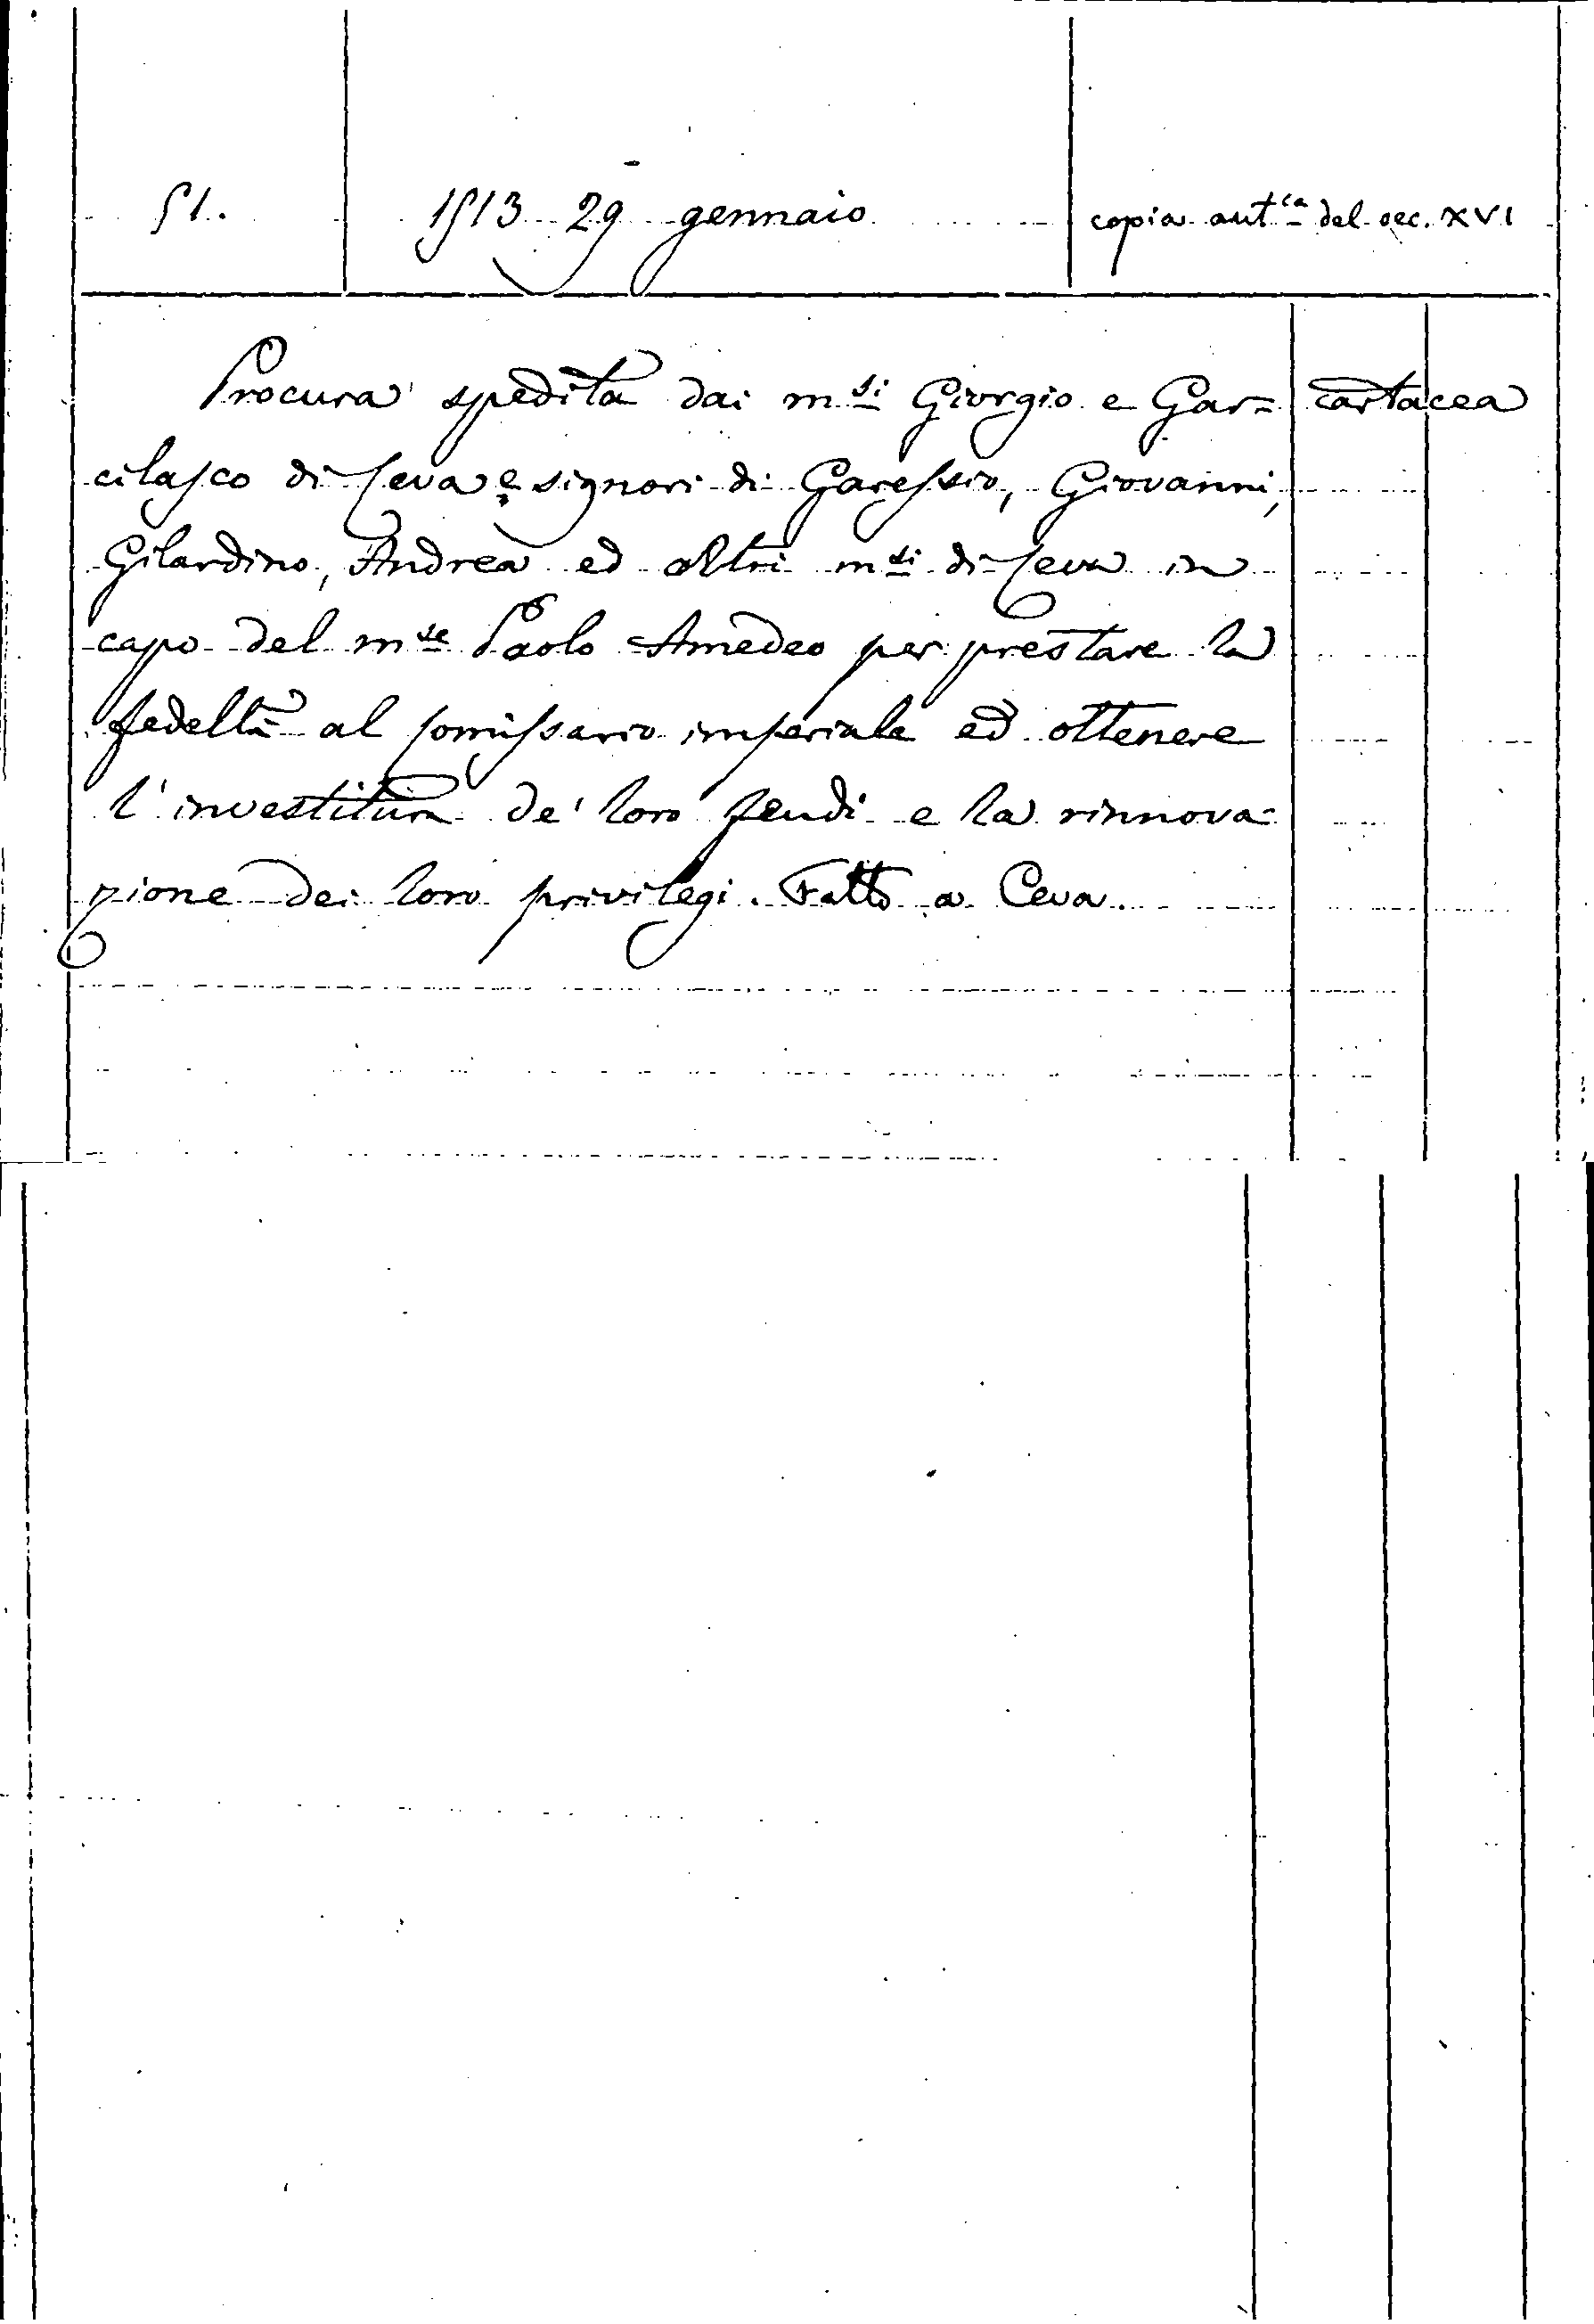 51. 1513 29 gennaio copia aut.ca del sec. XVI
Procura spedita dai m.si Giorgio e Gar= cartacea
cilasco di Ceva e signori di Garessio, Giovanni,
Gilardino, Andrea ed altri m.si di Ceva in
capo del m.se Paolo Amedeo per prestare la
fedeltà al Comissario imperiale ed ottenere
l'investitura de' loro feudi e la rinnova=
zione dei loro privilegi. Fatto a Ceva.